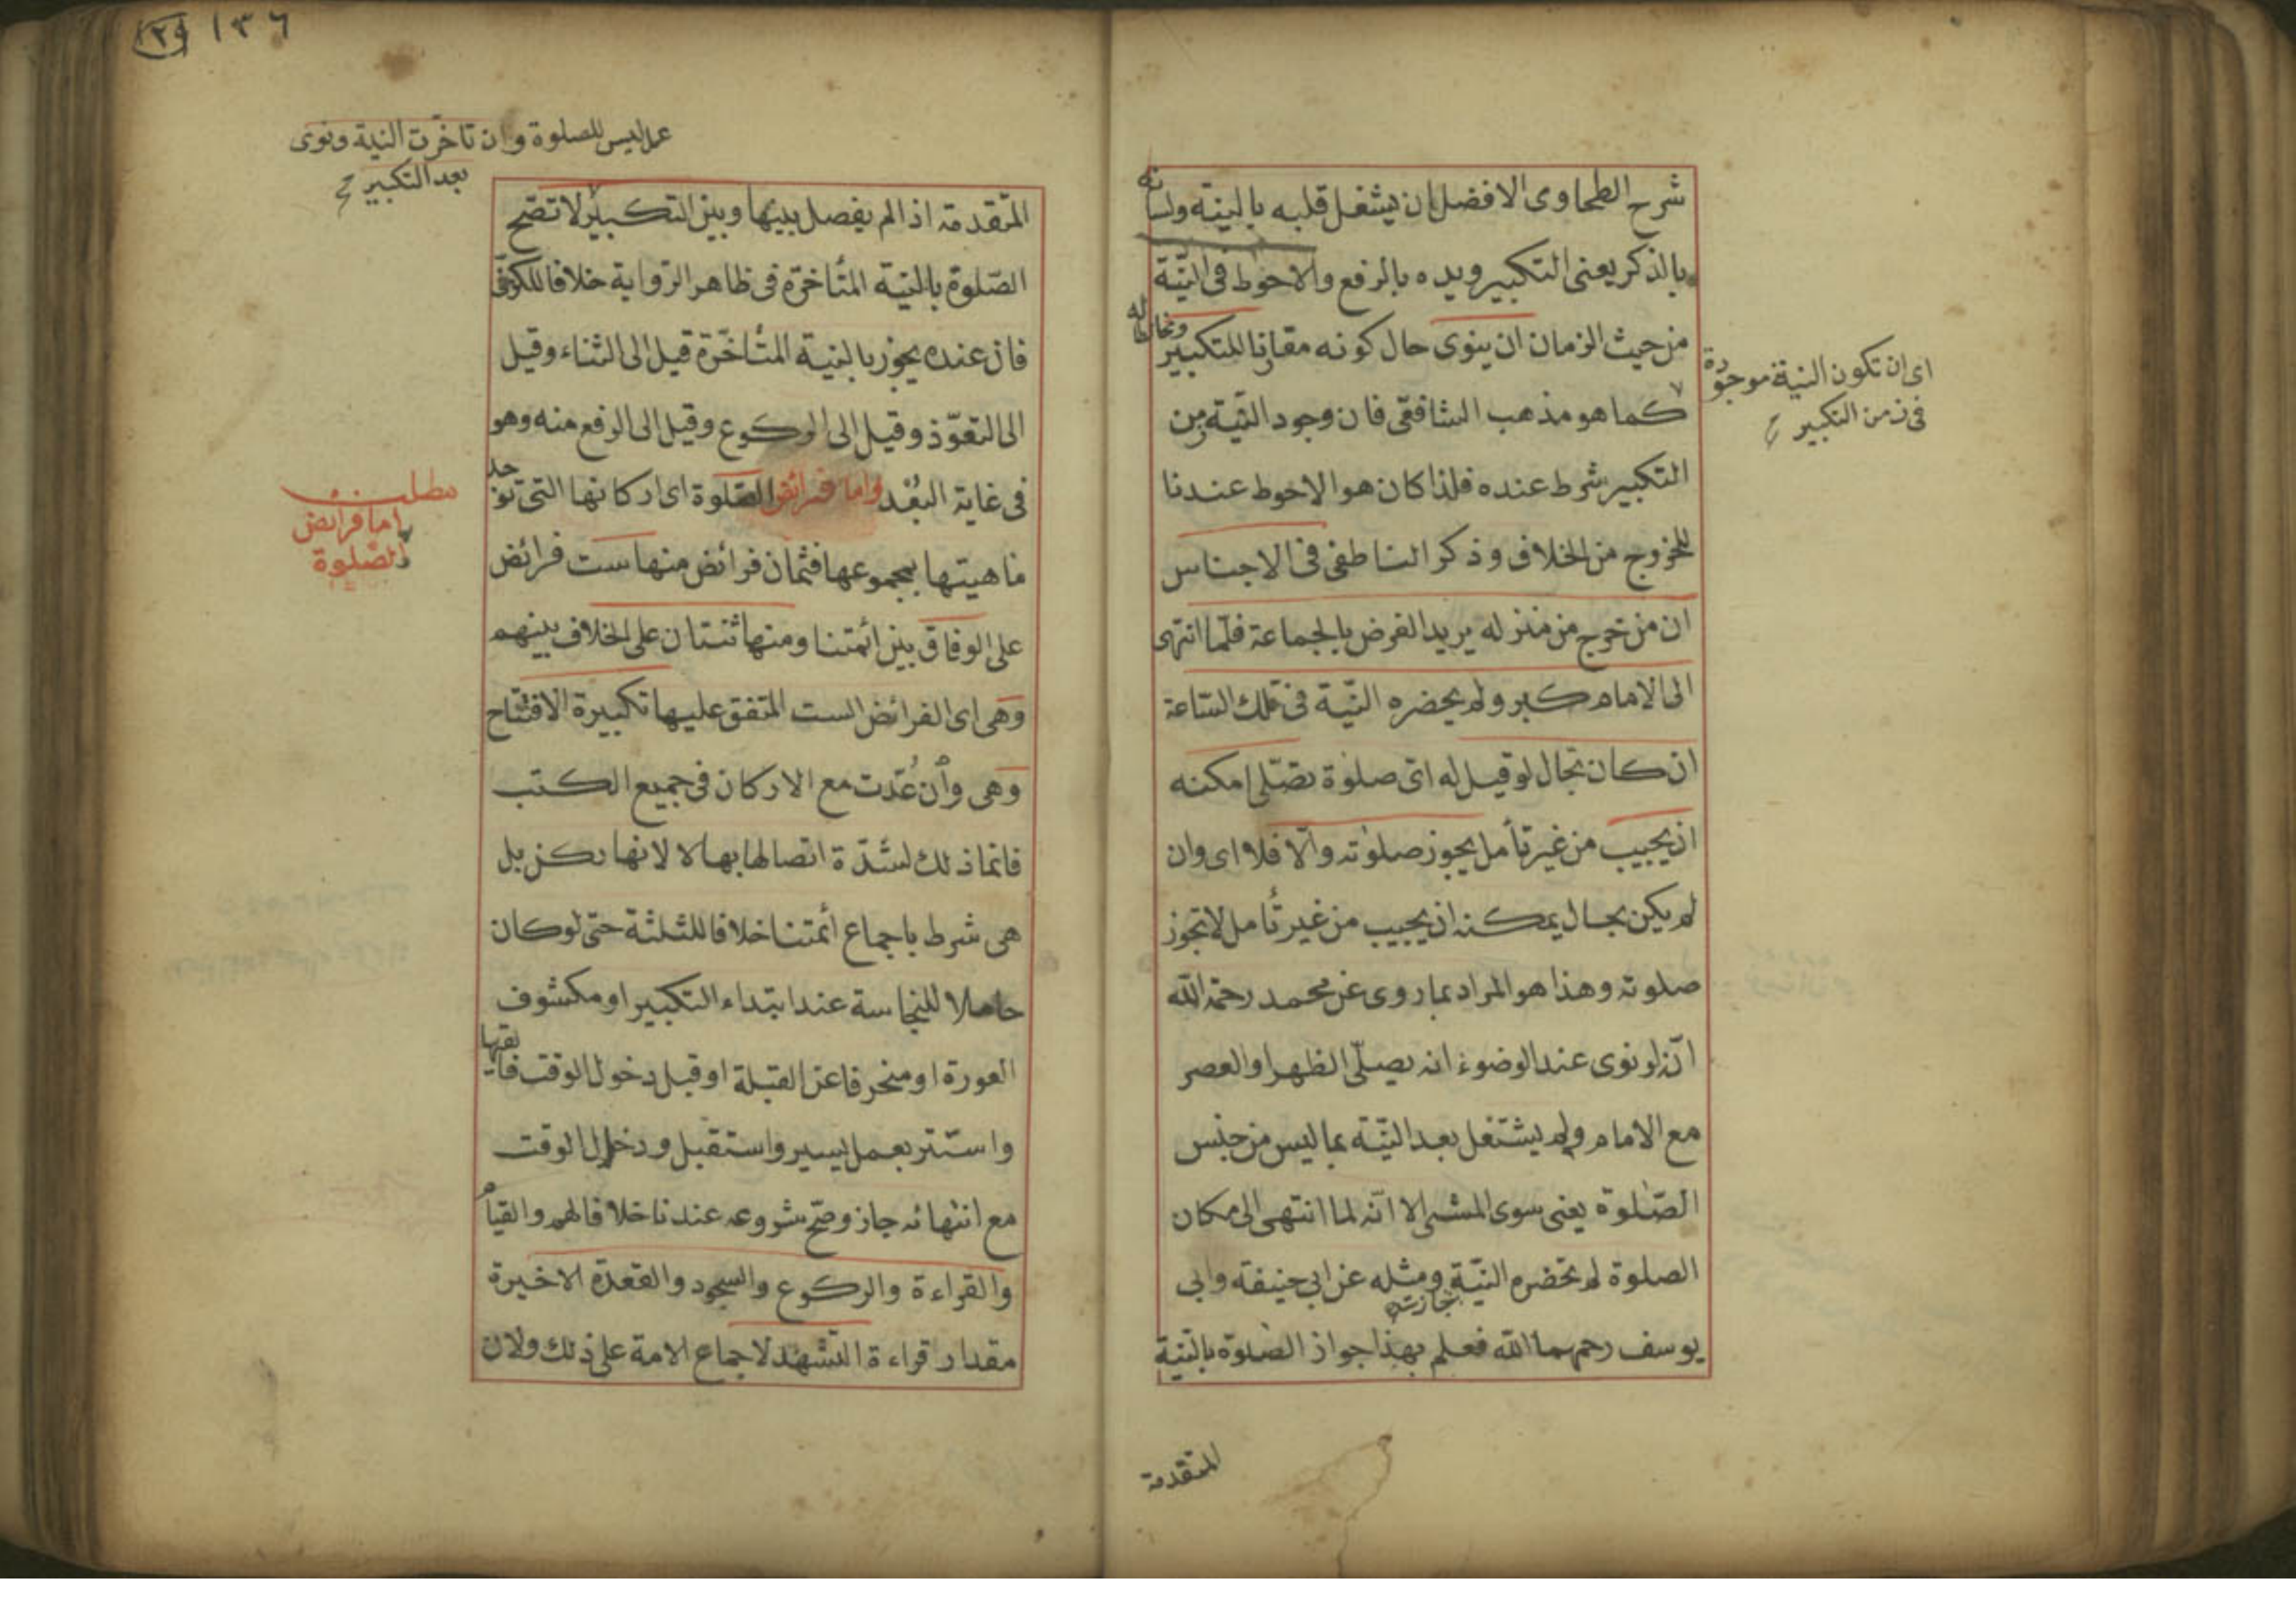 شرح الطحاوى الافضل ان يشغل قلبه بالنية ولسانه
بالذكر يعنى التكبير ويده بالرفع والاحوط فى النّية
من حيث الزمان ان ينوى حال كونه مقارنا للتكبير ومخالطا له
كما هو مذهب الشافعى فان وجود النّية من
التكبير شرط عنده فلذا كان هو الاحوط عندنا
للخروج من الخلاف وذكر الناطفى فى الاجناس
ان من خرج من منزله يريد الفرض بالجماعة فلمّا انتهى
الى الامام كبر ولم يحضره النّية فى تلك السّاعة
ان كان بحال لو قيل له اىّ صلوة تصّلى امكنه
ان يجيب من غير تأمل يجوز صلوته والّا فلا اى وان
لم يكن بحال يمكنه ان يجيب من غير تأمل لا تجوز
صلوته وهذا هو المراد بما روى عن محمد رحمه الله
انّه لو نوى عند الوضوء انه يصلّى الظهر او العصر
مع الامام ولم يشتغل بعد النّية بما ليس من جنس
الصّلوة يعنى سوى المشى الا انّه لما انتهى الى مكان
الصلوة لم تحضره النّية جازت ومثله عن ابى حنيفة وابى
يوسف رحمهما الله فعلم بهذا جواز الصّلوة بالنّية
اى ان تكون النية موجودة
فى زمن التكبير
المتقدمة
١٣٦
عمل ليس للصلوة وان تاخّرت النية ونوى
بعد التكبير
المتّقدمة اذا لم يفصل بينها وبين التكبير لا تصّح
الصّلوة بالنيّة المتأخرة فى ظاهر الرّواية خلافا للكرخى
فان عنده يجوز بالنية المتأخّرة قيل الى الثناء وقيل
الى التعوّذ وقيل الى الركوع وقيل الى الرفع منه وهو
فى غاية البُعْد واما فرائض الصّلوة اى اركانها التى توجد
ماهيتها بمجموعها فثمان فرائض منها ست فرائض
على الوفاق بين ائمتنا ومنها ثنتان على الخلاف بينهم
وهى اى الفرائض الست المتفق عليها تكبيرة الافتتاح
وهى وأن عُدّت مع الاركان فى جميع الكتب
فانما ذلك لشدّة اتصالها بها لا لانها ركن بل
هى شرط باجماع أئمتنا خلافا للثلثة حتّى لو كان
حاملا للنجاسة عند ابتداء التكبير او مكشوف
العورة او منحرفا عن القبلة او قبل دخول الوقت فالقها
واستتر بعمل يسير واستقبل ودخل الوقت
مع انتهائه جاز وصّح شروعه عندنا خلافا لهم والقيام
والقراءة والركوع والسجود والقعدة الاخيرة
مقدار قراءة التّشهّد لاجماع الامة على ذلك ولان
مطلب
اما فرائض
الصّلوة